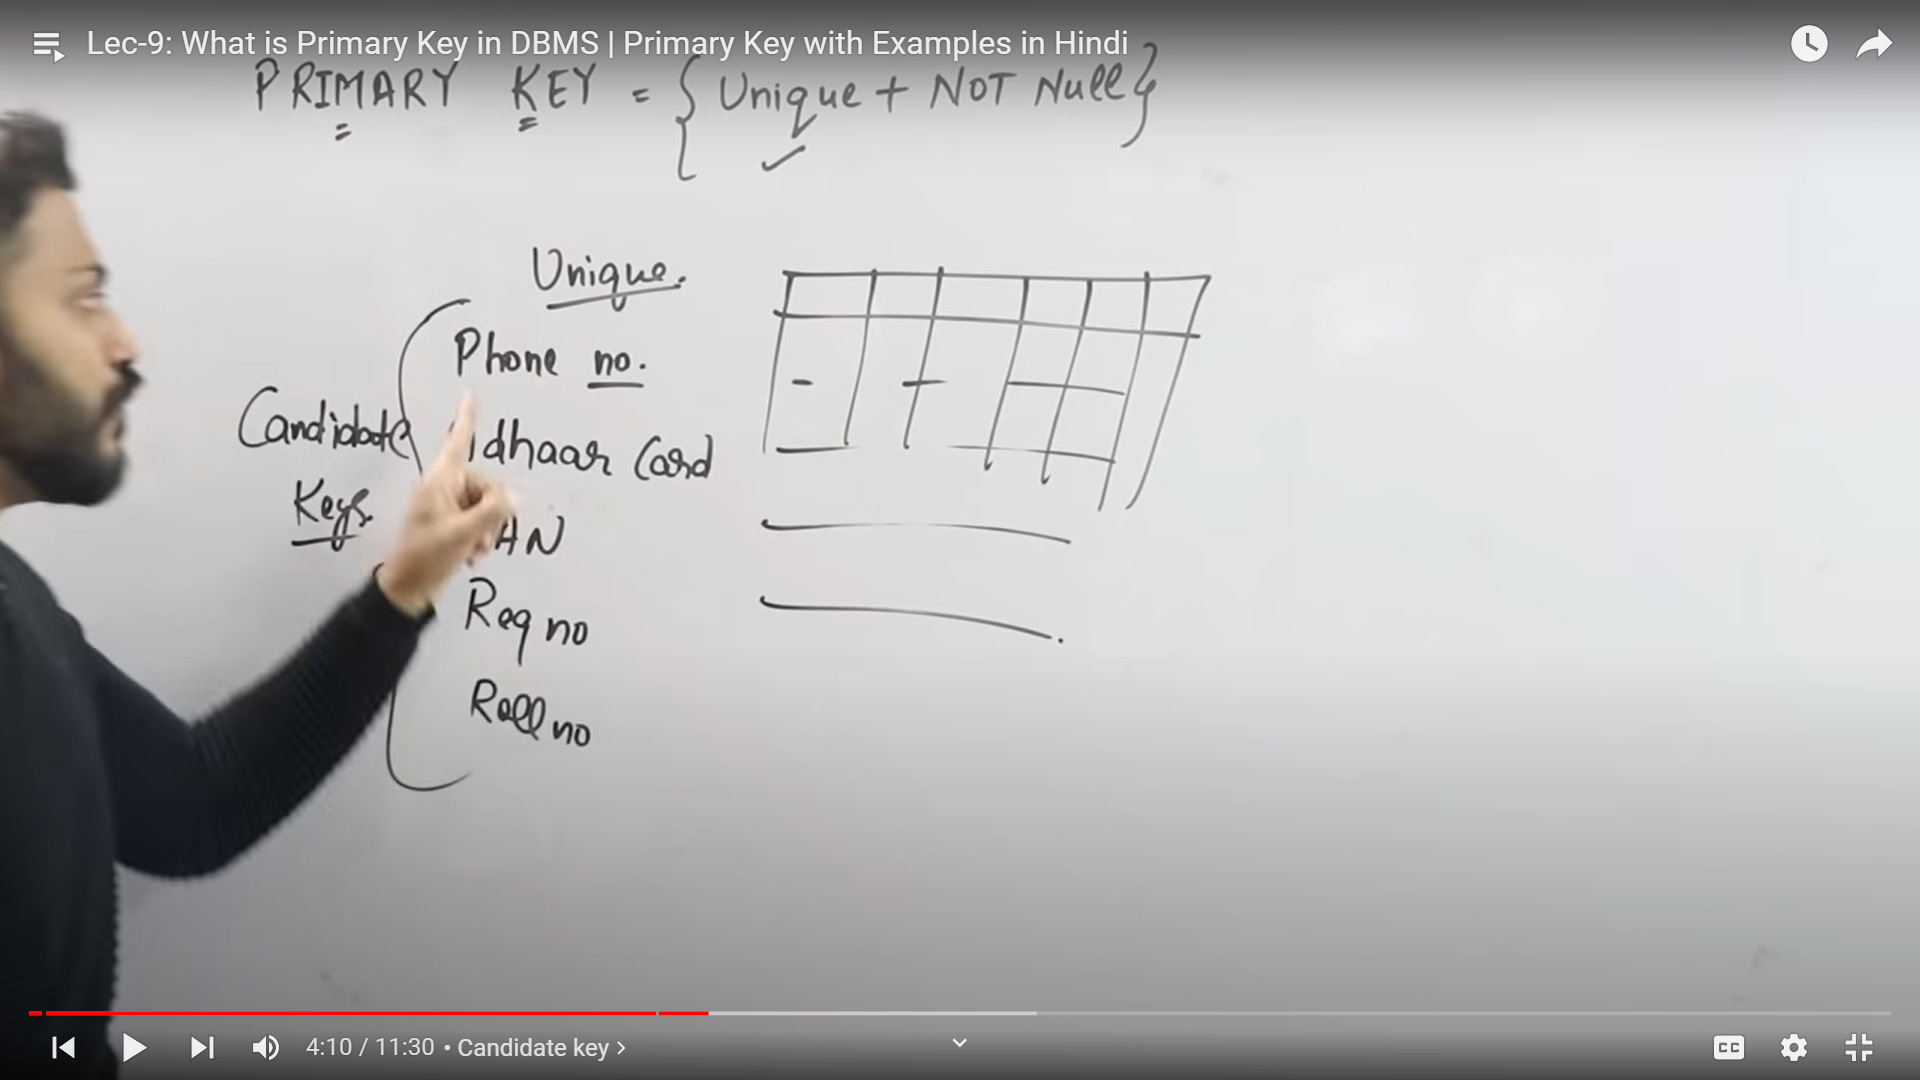 Lec-9: What is Primary Key in DBMS | Primary Key with Examples in Hindi
PRIMARY KEY = { Unique + NOT Null }
Unique.
Phone no.
Candidate
Keys
Adhaar Card
AN
Reg no
Roll no
4:10 / 11:30 • Candidate key >
CC